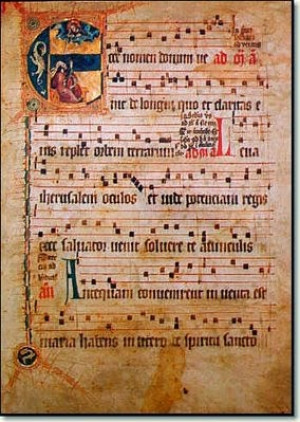 Ecce nomen domini ue ad
nit de longinquo et claritas e
ius replet orbem terrarum Leua
iherusalem oculos et uide potenciam regis
ecce saluator uenit soluere te a uinculis
an Antequam conuenirent inuenta est
maria habens in utero de spiritu sancto